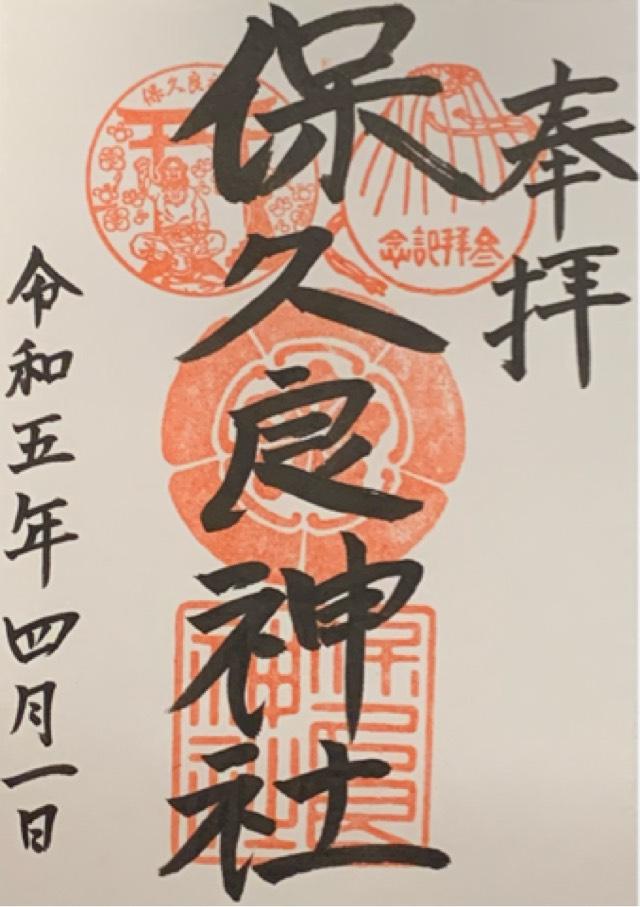 奉拝
保久良神社
令和五年四月一日
参拝記念
保久良神社